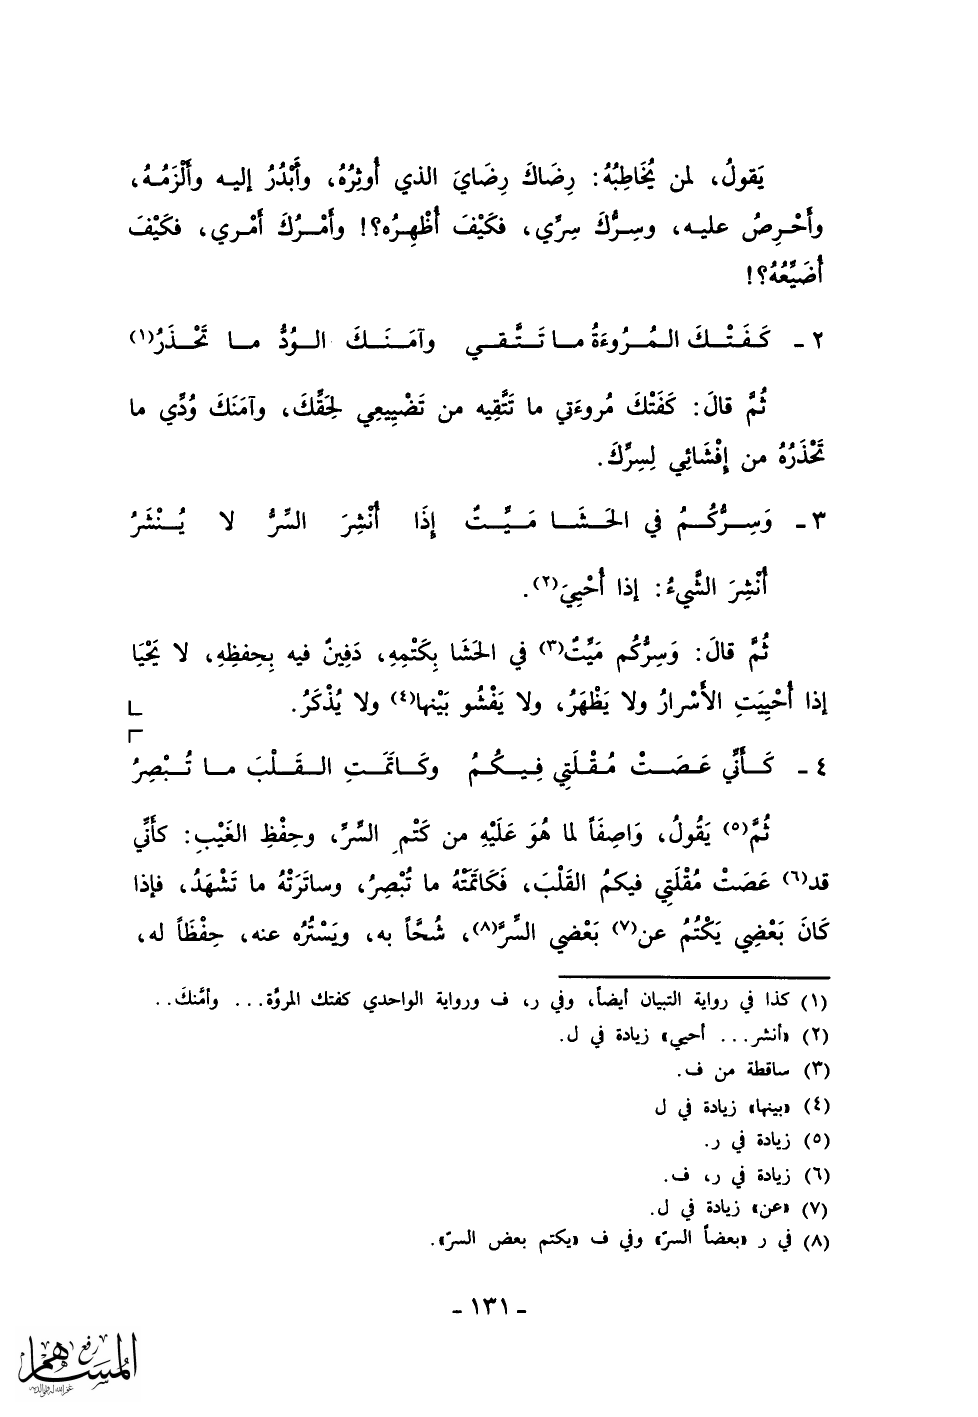 يَقولُ، لمن يُخَاطِبُهُ: رِضَاكَ رِضَايَ الذي أُوثِرُهُ، وأَبْدُرُ إليه وأَلْزَمُهُ،
وأَحْرِصُ عليه، وسِرُّكَ سِرِّي، فكَيْفَ أُظْهِرُه؟! وأَمْرُكَ أَمْري، فكَيْفَ
أُضَيِّعُهُ؟!
٢ - كَفَتْكَ المُرُوءَةُ ما تَتَّقي وآمَنَكَ الوُدُّ ما تَحْذَرُ(١)
ثُمَّ قالَ: كَفَتْكَ مُروءَتي ما تَتَّقِيه من تَضْيِيعِي لِحَقِّكَ، وآمَنَكَ وُدِّي ما
تَحْذَرُهُ من إِفْشَائِي لِسِرِّكَ.
٣ - وَسِرُّكُمُ في الحَشَا مَيِّتٌ إِذَا أُنْشِرَ السِّرُّ لا يُنْشَرُ
أُنْشِرَ الشَّيءُ: إذا أُحْيِيَ(٢).
ثُمَّ قالَ: وَسِرُّكُم مَيِّتٌ(٣) في الحَشَا بِكَتْمِهِ، دَفِينٌ فيه بِحِفظِهِ، لا يَحْيَا
إذا أُحْيِيَتِ الأَسْرارُ ولا يَظْهَرُ، ولا يَفْشُو بَيْنها(٤) ولا يُذْكَرُ.
٤ - كَأَنِّي عَصَتْ مُقْلَتِي فِيكُمُ وكَاتَمَتِ القَلْبَ ما تُبْصِرُ
ثُمَّ(٥) يَقُولُ، وَاصِفَاً لما هُوَ عَلَيْهِ من كَتْمِ السِّرِّ، وحِفْظِ الغَيْبِ: كأَنِّي
قد(٦) عَصَتْ مُقْلَتِي فيكمُ القَلْبَ، فَكَاتَمَتْهُ ما تُبْصِرُ، وساتَرَتْهُ ما تَشْهَدُ، فإذا
كَانَ بَعْضِي يَكْتُمُ عن(٧) بَعْضي السِّرَّ(٨)، شُحَّاً به، ويَسْتُرُه عنه، حِفْظَاً له،
(١) كذا في رواية التبيان أيضاً، وفي ر، ف ورواية الواحدي كفتك المروُة... وأمَّنكَ..
(٢) «أنشر... أحيي» زيادة في ل.
(٣) ساقطة من ف.
(٤) «بينها» زيادة في ل
(٥) زيادة في ر.
(٦) زيادة في ر، ف.
(٧) «عن» زيادة في ل.
(٨) في ر «بعضاً السرّ» وفي ف «يكتم بعض السرّ».
- ١٣١ -